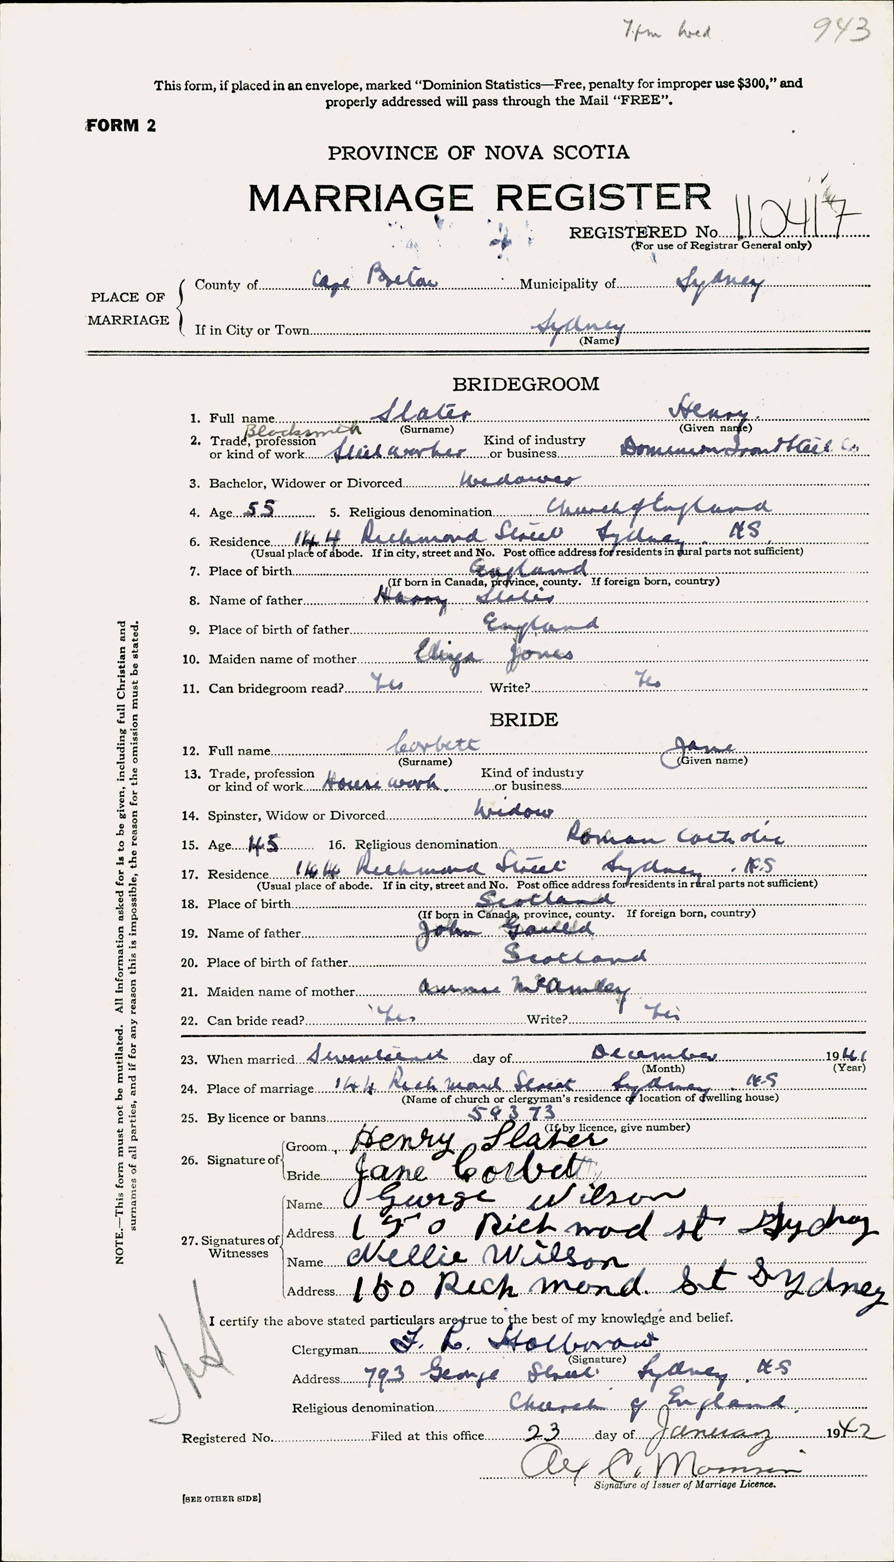 7 pm Wed 943
This form, if placed in an envelope, marked "Dominion Statistics—Free, penalty for improper use $300," and
properly addressed will pass through the Mail "FREE".
FORM 2
PROVINCE OF NOVA SCOTIA
MARRIAGE REGISTER
REGISTERED No. 110417
(For use of Registrar General only)
PLACE OF MARRIAGE
County of Cape Breton Municipality of Sydney
If in City or Town Sydney
(Name)
BRIDEGROOM
1. Full name Slater Henry
(Surname) (Given name)
Blacksmith
2. Trade, profession Kind of industry
or kind of work Steelworker or business Dominion Iron & Steel Co.
3. Bachelor, Widower or Divorced Widower
4. Age 55 5. Religious denomination Church of England
6. Residence 144 Richmond Street Sydney. N.S
(Usual place of abode. If in city, street and No. Post office address for residents in rural parts not sufficient)
7. Place of birth England
(If born in Canada, province, county. If foreign born, country)
8. Name of father Harry Slater
9. Place of birth of father England
10. Maiden name of mother Eliza Jones
11. Can bridegroom read? Yes Write? Yes
BRIDE
12. Full name Corbett Jane
(Surname) (Given name)
13. Trade, profession Kind of industry
or kind of work House work. or business
14. Spinster, Widow or Divorced Widow
15. Age 45 16. Religious denomination Roman Catholic
17. Residence 144 Richmond Street Sydney. N.S
(Usual place of abode. If in city, street and No. Post office address for residents in rural parts not sufficient)
18. Place of birth Scotland
(If born in Canada, province, county. If foreign born, country)
19. Name of father John
20. Place of birth of father Scotland
21. Maiden name of mother
22. Can bride read? Yes Write? Yes
23. When married Seventeenth day of December 1941
(Month) (Year)
24. Place of marriage 144 Richmond Street Sydney. N.S
(Name of church or clergyman's residence or location of dwelling house)
25. By licence or banns 59373
(If by licence, give number)
26. Signature of
Groom Henry Slater
Bride Jane Corbett
27. Signatures of Witnesses
Name George Wilson
Address 150 Richmod st Sydney
Name Nellie Wilson
Address 150 Richmond. St Sydney
I certify the above stated particulars are true to the best of my knowledge and belief.
Clergyman F. L. Holborow
(Signature)
Address 793 George Street Sydney. N.S
Religious denomination Church of England.
Registered No. Filed at this office 23 day of January 1942
Alex C. Morrison
Signature of Issuer of Marriage Licence.
[SEE OTHER SIDE]
NOTE.—This form must not be mutilated. All Information asked for is to be given, including full Christian and
surnames of all parties, and if for any reason this is impossible, the reason for the omission must be stated.